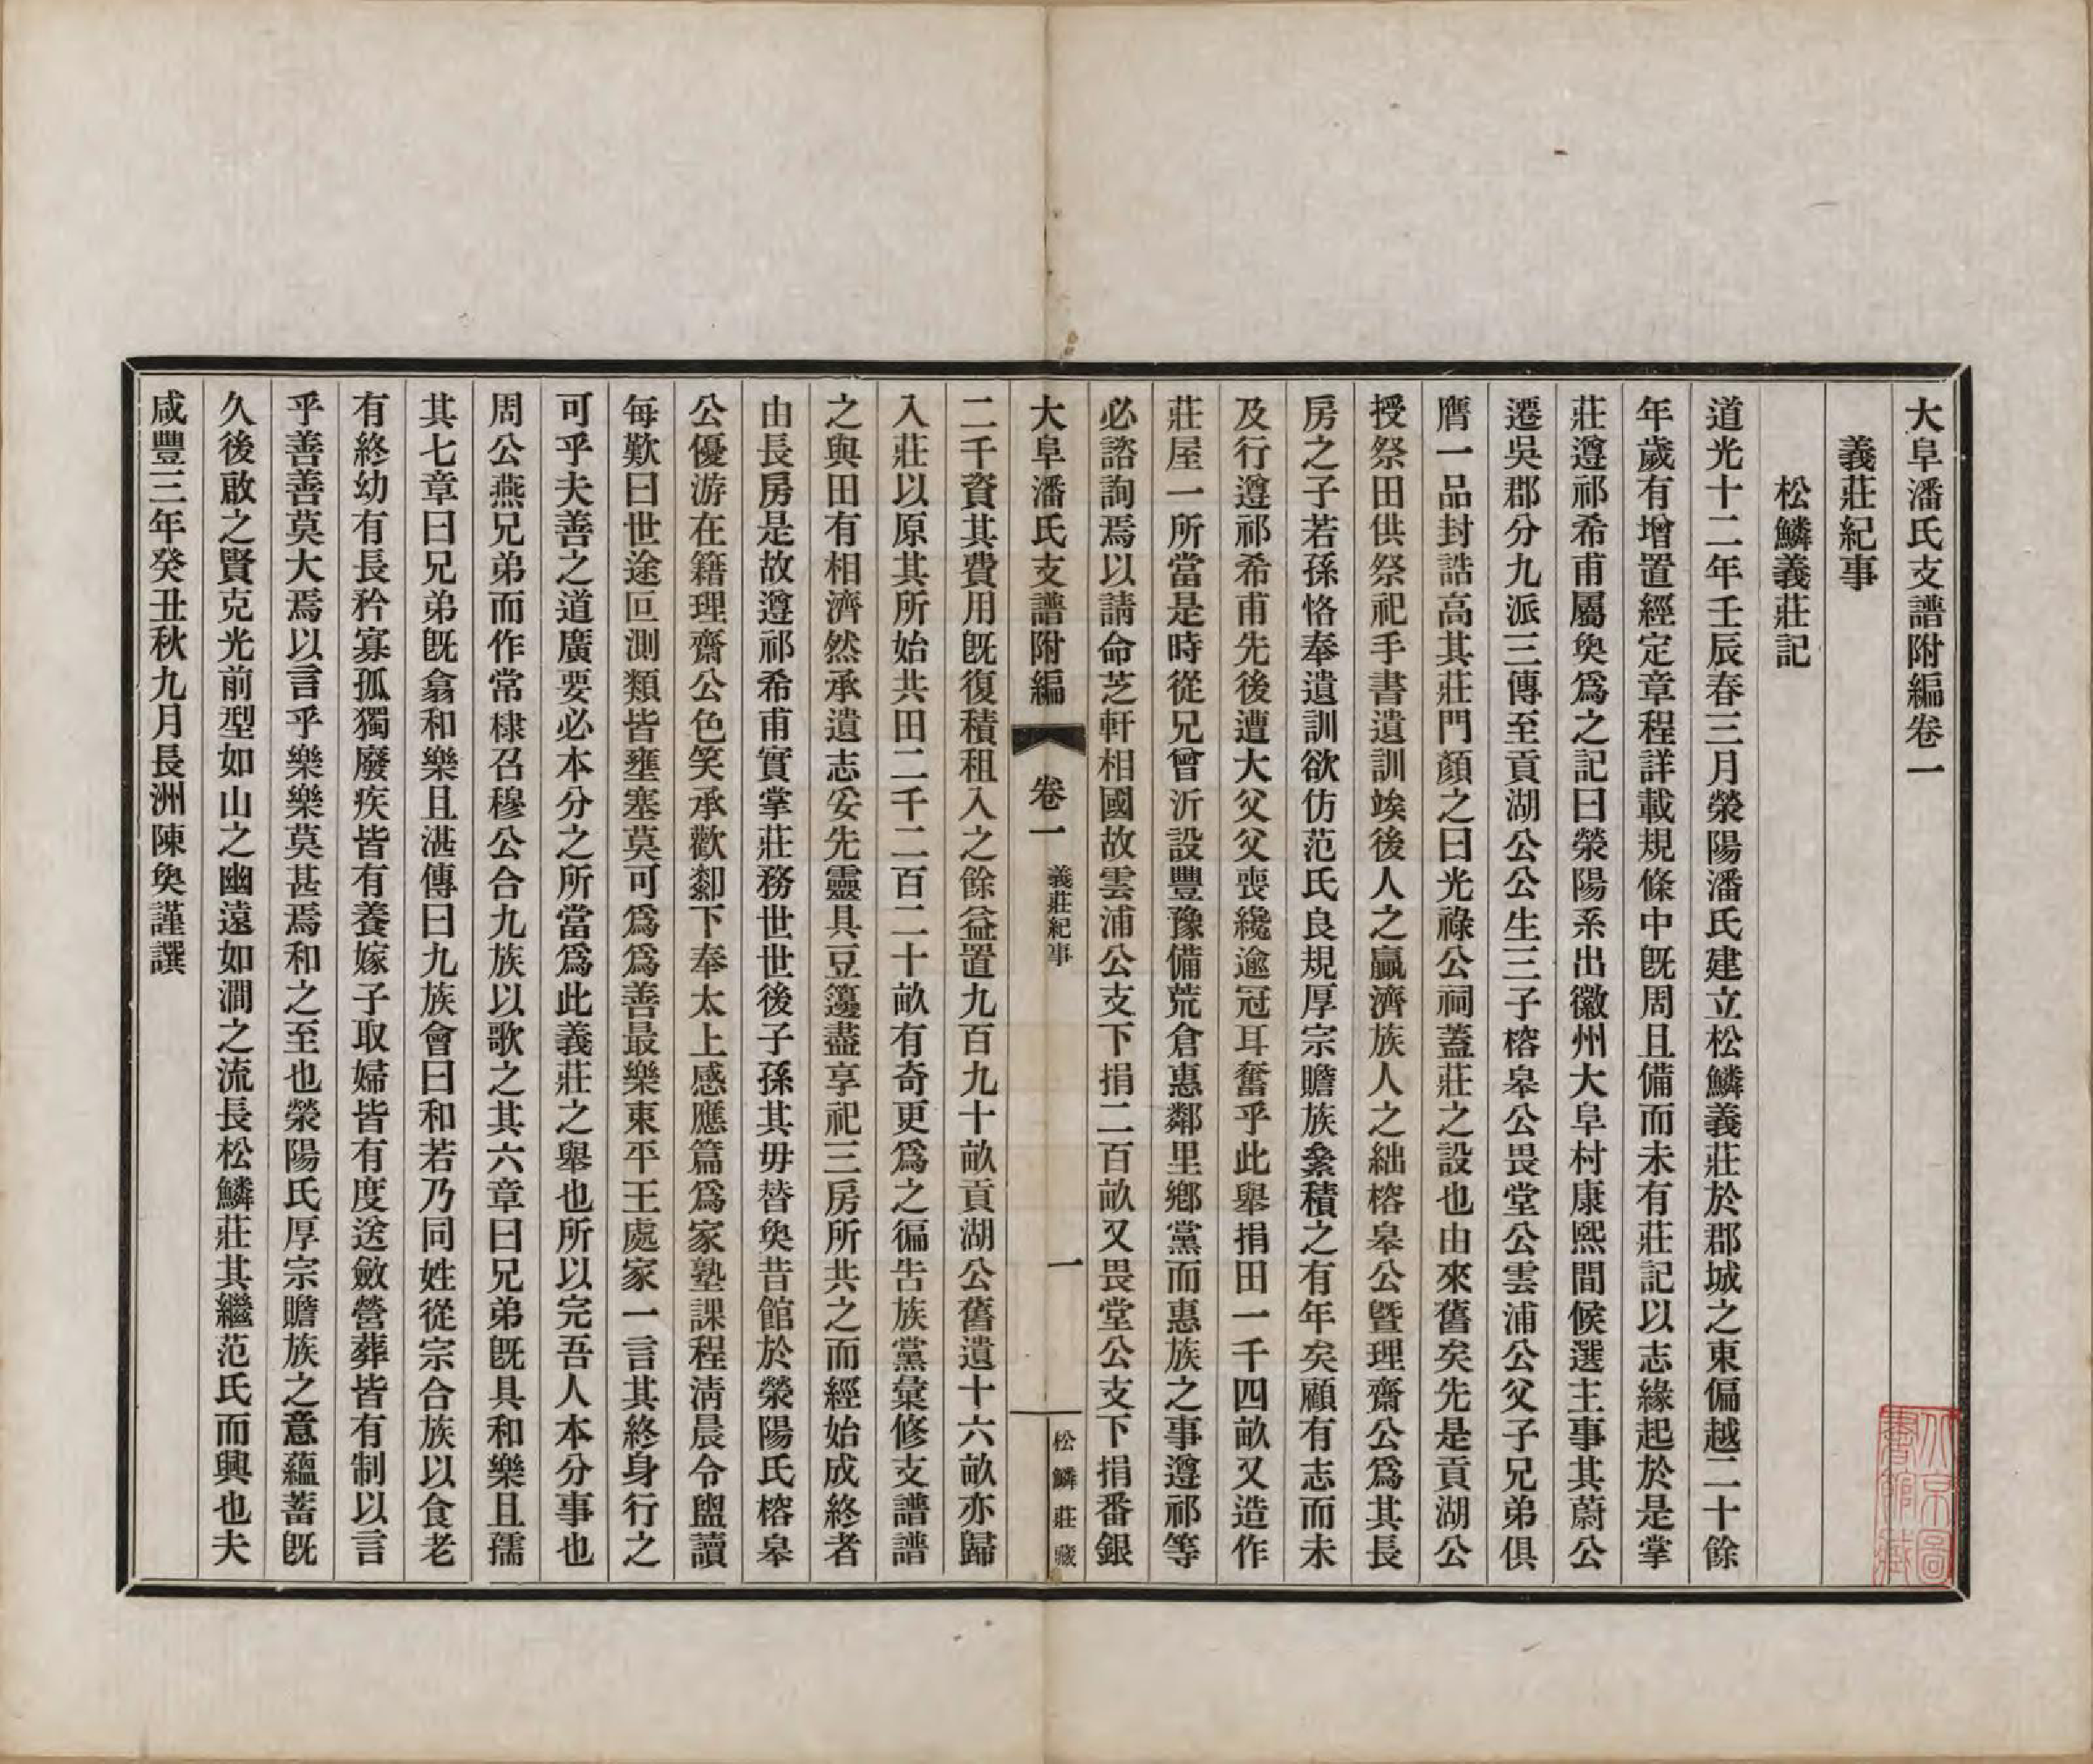 大阜潘氏支譜附編卷一
義莊紀事
松鱗義莊記
道光十二年壬辰春三月滎陽潘氏建立松鱗義莊於郡城之東偏越二十餘
年歲有增置經定章程詳載規條中旣周且備而未有莊記以志緣起於是掌
莊遵祁希甫屬奐爲之記曰滎陽系出徽州大阜村康熙間候選主事其蔚公
遷吳郡分九派三傳至貢湖公公生三子榕皋公畏堂公雲浦公父子兄弟俱
膺一品封誥高其莊門顏之曰光祿公祠蓋莊之設也由來舊矣先是貢湖公
授祭田供祭祀手書遺訓竢後人之贏濟族人之絀榕皋公曁理齋公爲其長
房之子若孫恪奉遺訓欲仿范氏良規厚宗贍族絫積之有年矣顧有志而未
及行遵祁希甫先後遭大父父喪纔逾冠耳奮乎此舉捐田一千四畝又造作
莊屋一所當是時從兄曾沂設豐豫備荒倉惠鄰里鄉黨而惠族之事遵祁等
必諮詢焉以請命芝軒相國故雲浦公支下捐二百畝又畏堂公支下捐番銀
大阜潘氏支譜附編 卷一 義莊紀事 一 松鱗莊藏
二千資其費用旣復積租入之餘益置九百九十畝貢湖公舊遺十六畝亦歸
入莊以原其所始共田二千二百二十畝有奇更爲之徧告族黨彙修支譜譜
之與田有相濟然承遺志妥先靈具豆籩盡享祀三房所共之而經始成終者
由長房是故遵祁希甫實掌莊務世世後子孫其毋替奐昔館於滎陽氏榕皋
公優游在籍理齋公色笑承歡厀下奉太上感應篇爲家塾課程淸晨令盥讀
每歎曰世途叵測類皆壅塞莫可爲爲善最樂東平王處家一言其終身行之
可乎夫善之道廣要必本分之所當爲此義莊之舉也所以完吾人本分事也
周公燕兄弟而作常棣召穆公合九族以歌之其六章曰兄弟旣具和樂且孺
其七章曰兄弟旣翕和樂且湛傳曰九族會曰和若乃同姓從宗合族以食老
有終幼有長矜寡孤獨廢疾皆有養嫁子取婦皆有度送斂營葬皆有制以言
乎善善莫大焉以言乎樂樂莫甚焉和之至也滎陽氏厚宗贍族之意蘊蓄旣
久後啟之賢克光前型如山之幽遠如澗之流長松鱗莊其繼范氏而興也夫
咸豐三年癸丑秋九月長洲陳奐謹譔